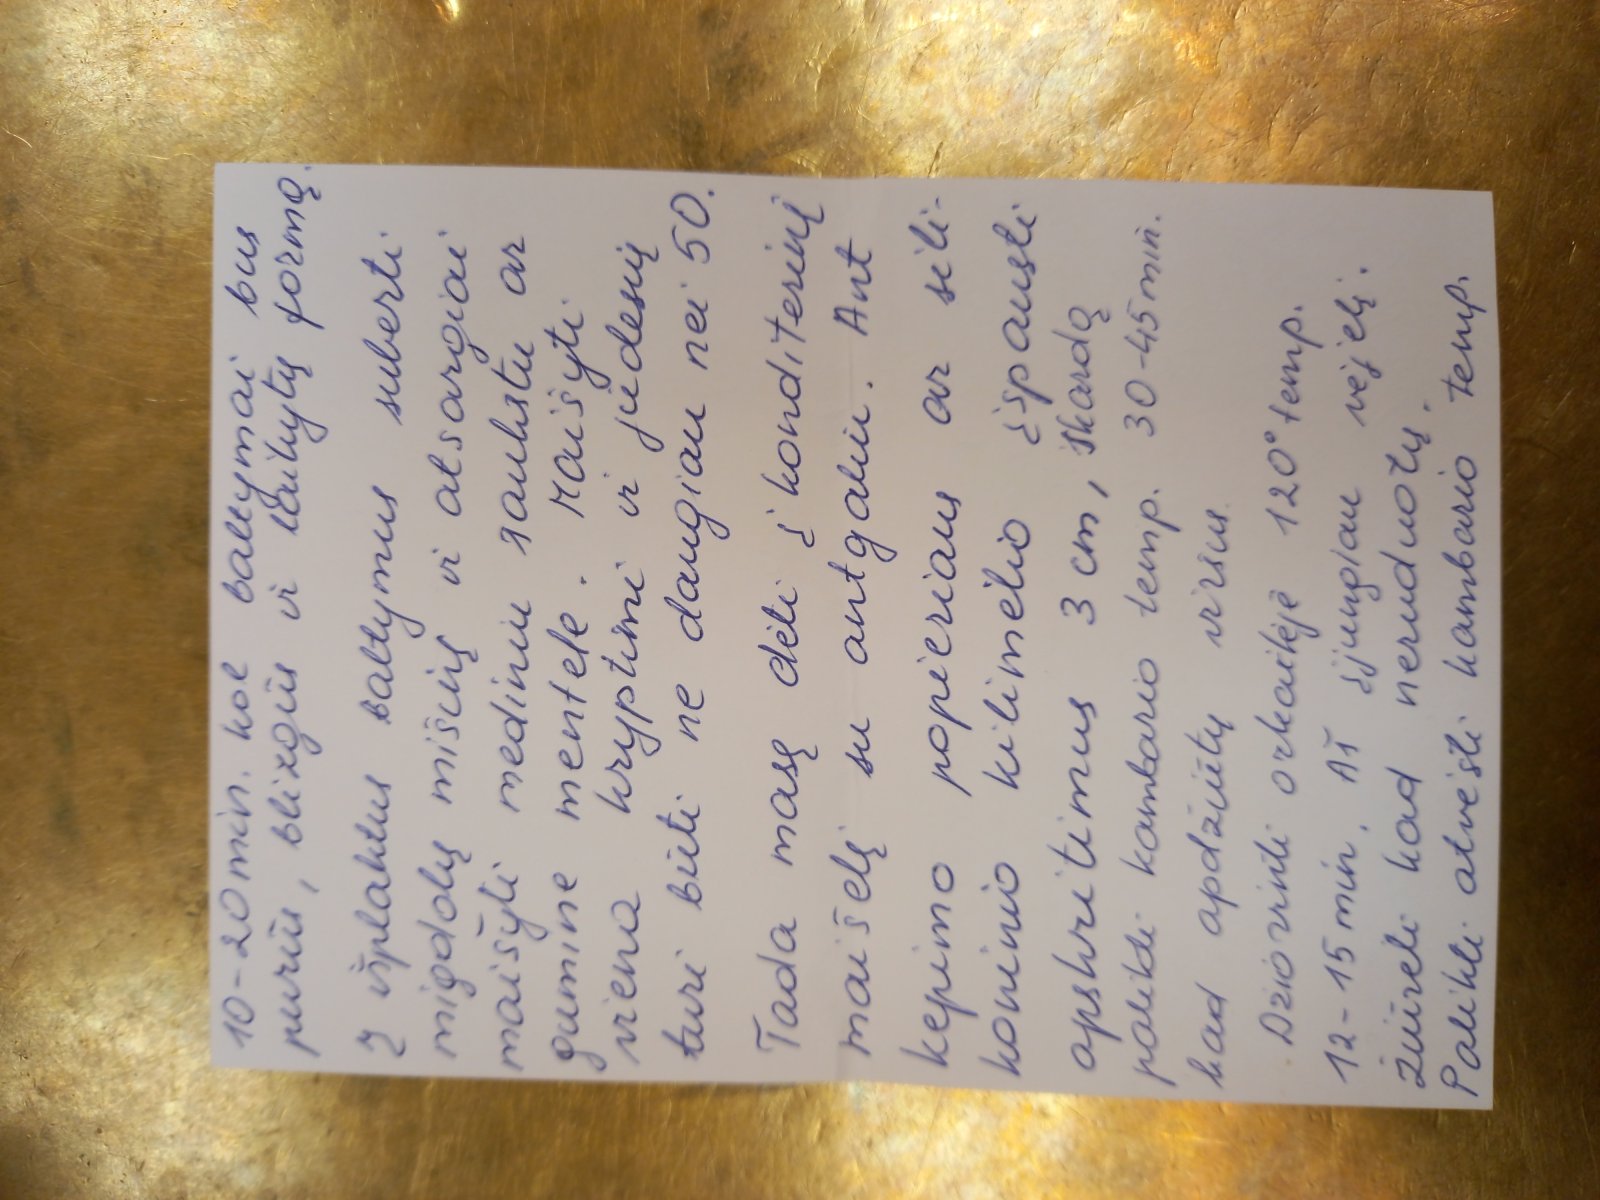 10-20 min. kol baltymai bus
purūs, blizgūs ir laikytų formą.
Į išplaktus baltymus suberti
migdolų mišinį ir atsargiai
maišyti mediniu šaukštu ar
gumine mentele. Maišyti
viena kryptimi ir judesių
turi būti ne daugiau nei 50.
Tada masę dėti į konditerinį
maišelį su antgaliu. Ant
kepimo popieriaus ar sili-
koninio kilimėlio išspausti
apskritimus 3 cm, skardą
palikti kambario temp. 30-45 min.
kad apdžiūtų viršus.
Džiovinti orkaitėje 120° temp.
12-15 min. Aš įjungiau vėjelį.
Žiūrėti kad neruduotų.
Palikti atvėsti kambario temp.